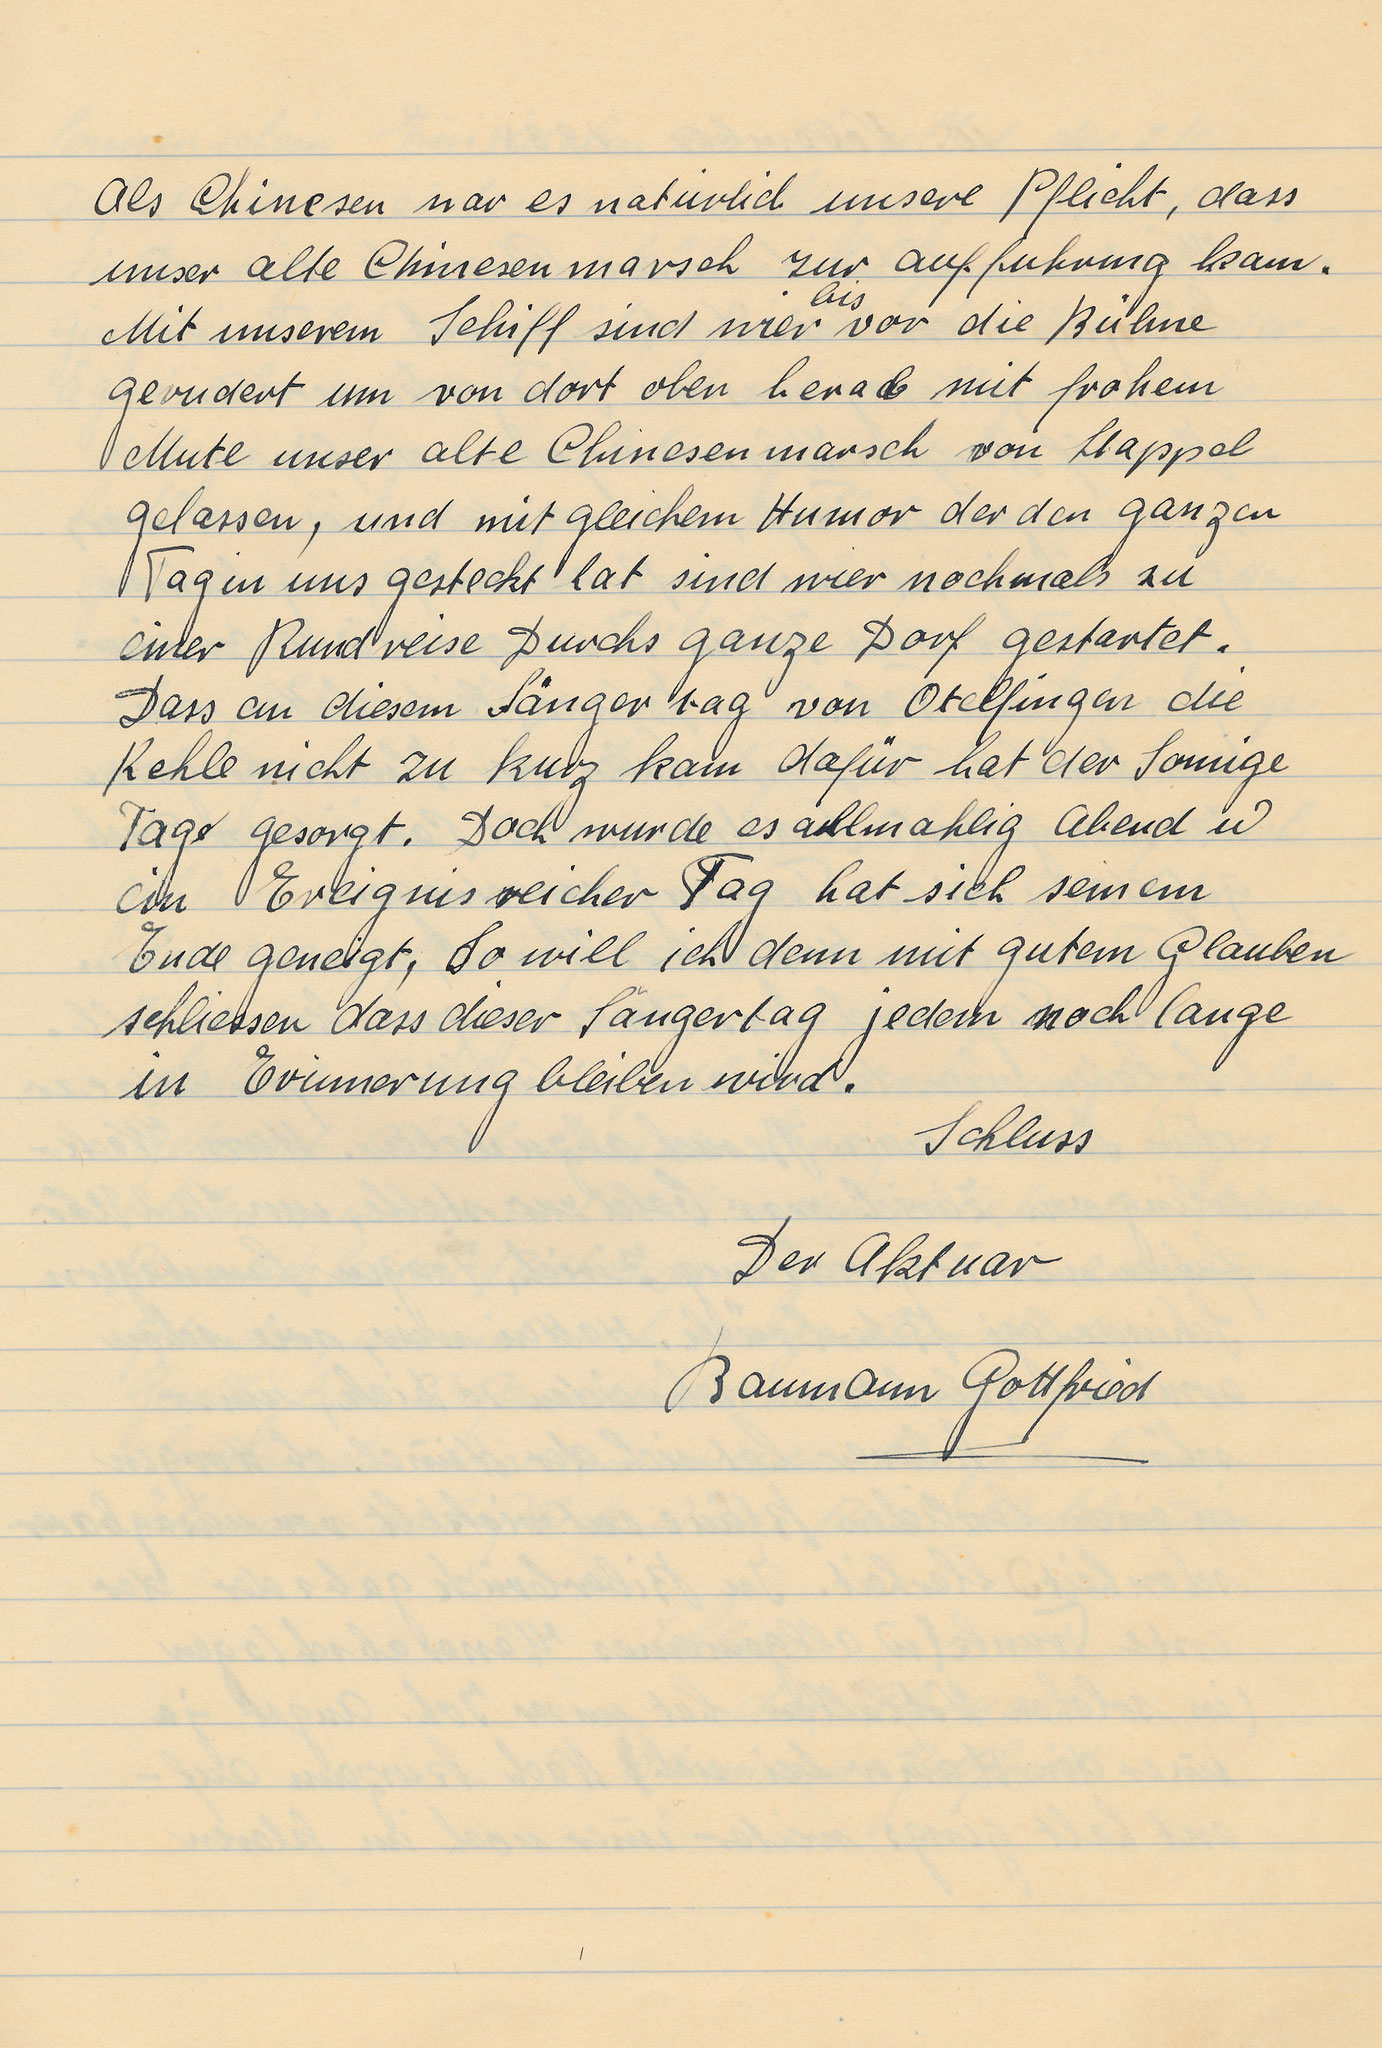 Als Chinesen war es natürlich unsere Pflicht, dass
unser alte Chinesenmarsch zur aufführung kam.
Mit unserem Schiff sind wier bis vor die Bühne
gerudert um von dort oben herab mit frohem
Mute unser alte Chinesenmarsch von Stappel
gelassen, und mit gleichem Humor der den ganzen
Tag in uns gesteckt hat sind wier nochmals zu
einer Rundreise Durchs ganze Dorf gestartet.
Dass an diesem Sängertag von Otelfingen die
Kehle nicht zu kurz kam dafür hat der Sonnige
Tage gesorgt. Doch wurde es allmahlig Abend u
ein Ereignisreicher Tag hat sich seinem
Ende geneigt, So will ich denn mit gutem Glauben
schliessen dass dieser Sängertag jedem noch lange
in Erinnerung bleiben wird.
Schluss
Der Aktuar
Baumann Gottfried